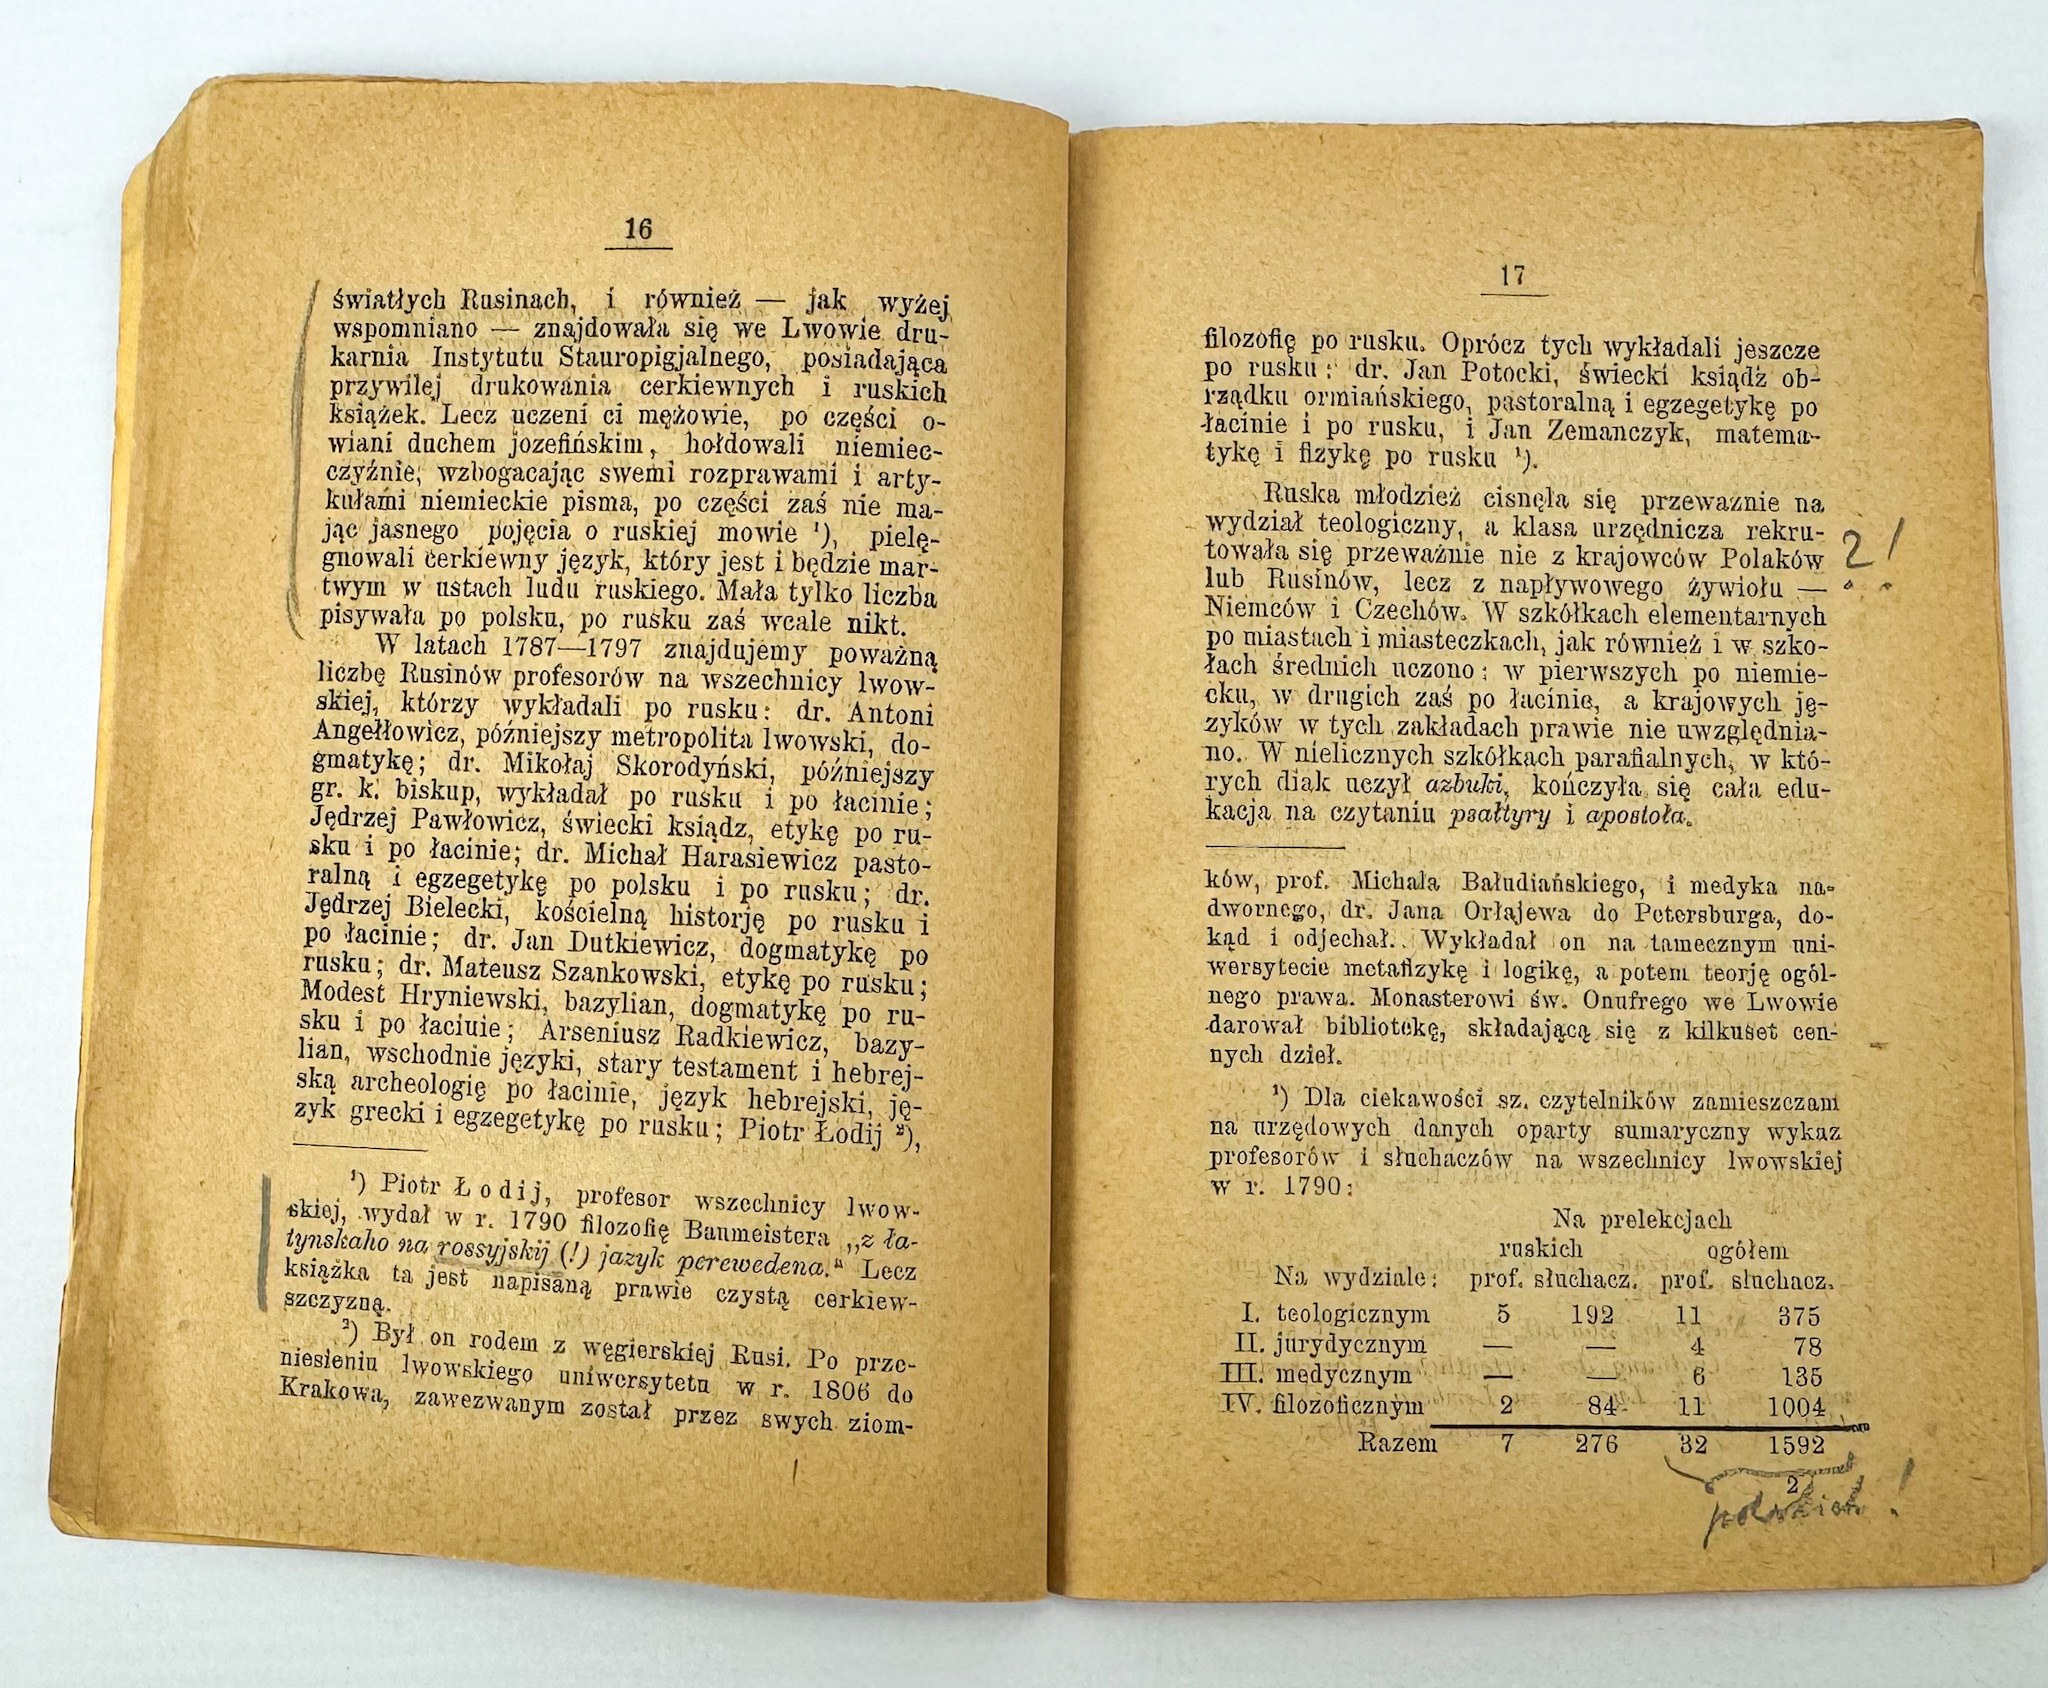 16
światłych Rusinach, i również — jak wyżej
wspomniano — znajdowała się we Lwowie dru-
karnia Instytutu Stauropigjalnego, posiadająca
przywilej drukowania cerkiewnych i ruskich
książek. Lecz uczeni ci mężowie, po części o-
wiani duchem jozefińskim, hołdowali niemiec-
czyźnie, wzbogacając swemi rozprawami i arty-
kułami niemieckie pisma, po części zaś nie ma-
jąc jasnego pojęcia o ruskiej mowie ¹), pielę-
gnowali cerkiewny język, który jest i będzie mar-
twym w ustach ludu ruskiego. Mała tylko liczba
pisywała po polsku, po rusku zaś wcale nikt.
W latach 1787—1797 znajdujemy poważną
liczbę Rusinów profesorów na wszechnicy lwow-
skiej, którzy wykładali po rusku: dr. Antoni
Angełłowicz, późniejszy metropolita lwowski, do-
gmatykę; dr. Mikołaj Skorodyński, późniejszy
gr. k. biskup, wykładał po rusku i po łacinie;
Jędrzej Pawłowicz, świecki ksiądz, etykę po ru-
sku i po łacinie; dr. Michał Harasiewicz pasto-
ralną i egzegetykę po polsku i po rusku; dr.
Jędrzej Bielecki, kościelną historję po rusku i
po łacinie; dr. Jan Dutkiewicz, dogmatykę po
rusku; dr. Mateusz Szankowski, etykę po rusku;
Modest Hryniewski, bazylian, dogmatykę po ru-
sku i po łaciuie; Arseniusz Radkiewicz, bazy-
lian, wschodnie języki, stary testament i hebrej-
ską archeologię po łacinie, język hebrejski, ję-
zyk grecki i egzegetykę po rusku; Piotr Łodij ²),
¹) Piotr Łodij, profesor wszechnicy lwow-
skiej, wydał w r. 1790 filozofię Baumeistera „z ła-
tynskaho na rossyjskij (!) jazyk perewedena.“ Lecz
książka ta jest napisaną prawie czystą cerkiew-
szczyzną.
²) Był on rodem z węgierskiej Rusi. Po prze-
niesieniu lwowskiego uniwersytetu w r. 1806 do
Krakowa, zawezwanym został przez swych ziom-
17
filozofię po rusku. Oprócz tych wykładali jeszcze
po rusku: dr. Jan Potocki, świecki ksiądz ob-
rządku ormiańskiego, pastoralną i egzegetykę po
łacinie i po rusku, i Jan Zemanczyk, matema-
tykę i fizykę po rusku ¹).
Ruska młodzież cisnęła się przeważnie na
wydział teologiczny, a klasa urzędnicza rekru-
towała się przeważnie nie z krajowców Polaków
lub Rusinów, lecz z napływowego żywiołu —
Niemców i Czechów. W szkółkach elementarnych
po miastach i miasteczkach, jak również i w szko-
łach średnich uczono: w pierwszych po niemie-
cku, w drugich zaś po łacinie, a krajowych ję-
zyków w tych zakładach prawie nie uwzględnia-
no. W nielicznych szkółkach parafialnych, w któ-
rych diak uczył azbuki, kończyła się cała edu-
kacja na czytaniu psałtyry i apostoła.
?!
ków, prof. Michała Bałudiańskiego, i medyka na-
dwornego, dr. Jana Orłajewa do Petersburga, do-
kąd i odjechał. Wykładał on na tamecznym uni-
wersytecie metafizykę i logikę, a potem teorję ogól-
nego prawa. Monasterowi św. Onufrego we Lwowie
darował bibliotekę, składającą się z kilkuset cen-
nych dzieł.
¹) Dla ciekawości sz. czytelników zamieszczam
na urzędowych danych oparty sumaryczny wykaz
profesorów i słuchaczów na wszechnicy lwowskiej
w r. 1790:
Na prelekcjach
ruskich ogółem
Na wydziale: prof. słuchacz. prof. słuchacz.
I. teologicznym 5 192 11 375
II. jurydycznym — — 4 78
III. medycznym — — 6 135
IV. filozoficznym 2 84 11 1004
Razem 7 276 32 1592
2
polskich!